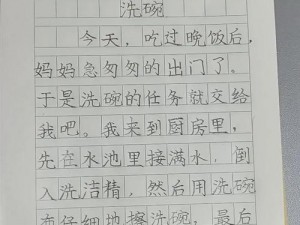 洗碗
今天，吃过晚饭后，
妈妈急匆匆的出门了。
于是洗碗的任务就交给
我吧。我来到厨房里，
先在水池里接满水，倒
入洗洁精，然后用洗碗
布仔细地擦洗碗，最后